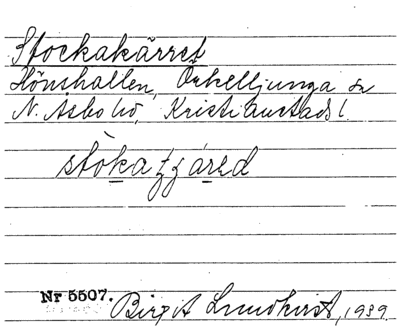 Stockakärret
Hönshallen, Örkelljunga sn
N. Åsbo hd, Kristianstads l.
stòkaʒʒáred
Nr 5507. Birgit Lundkvist, 1939